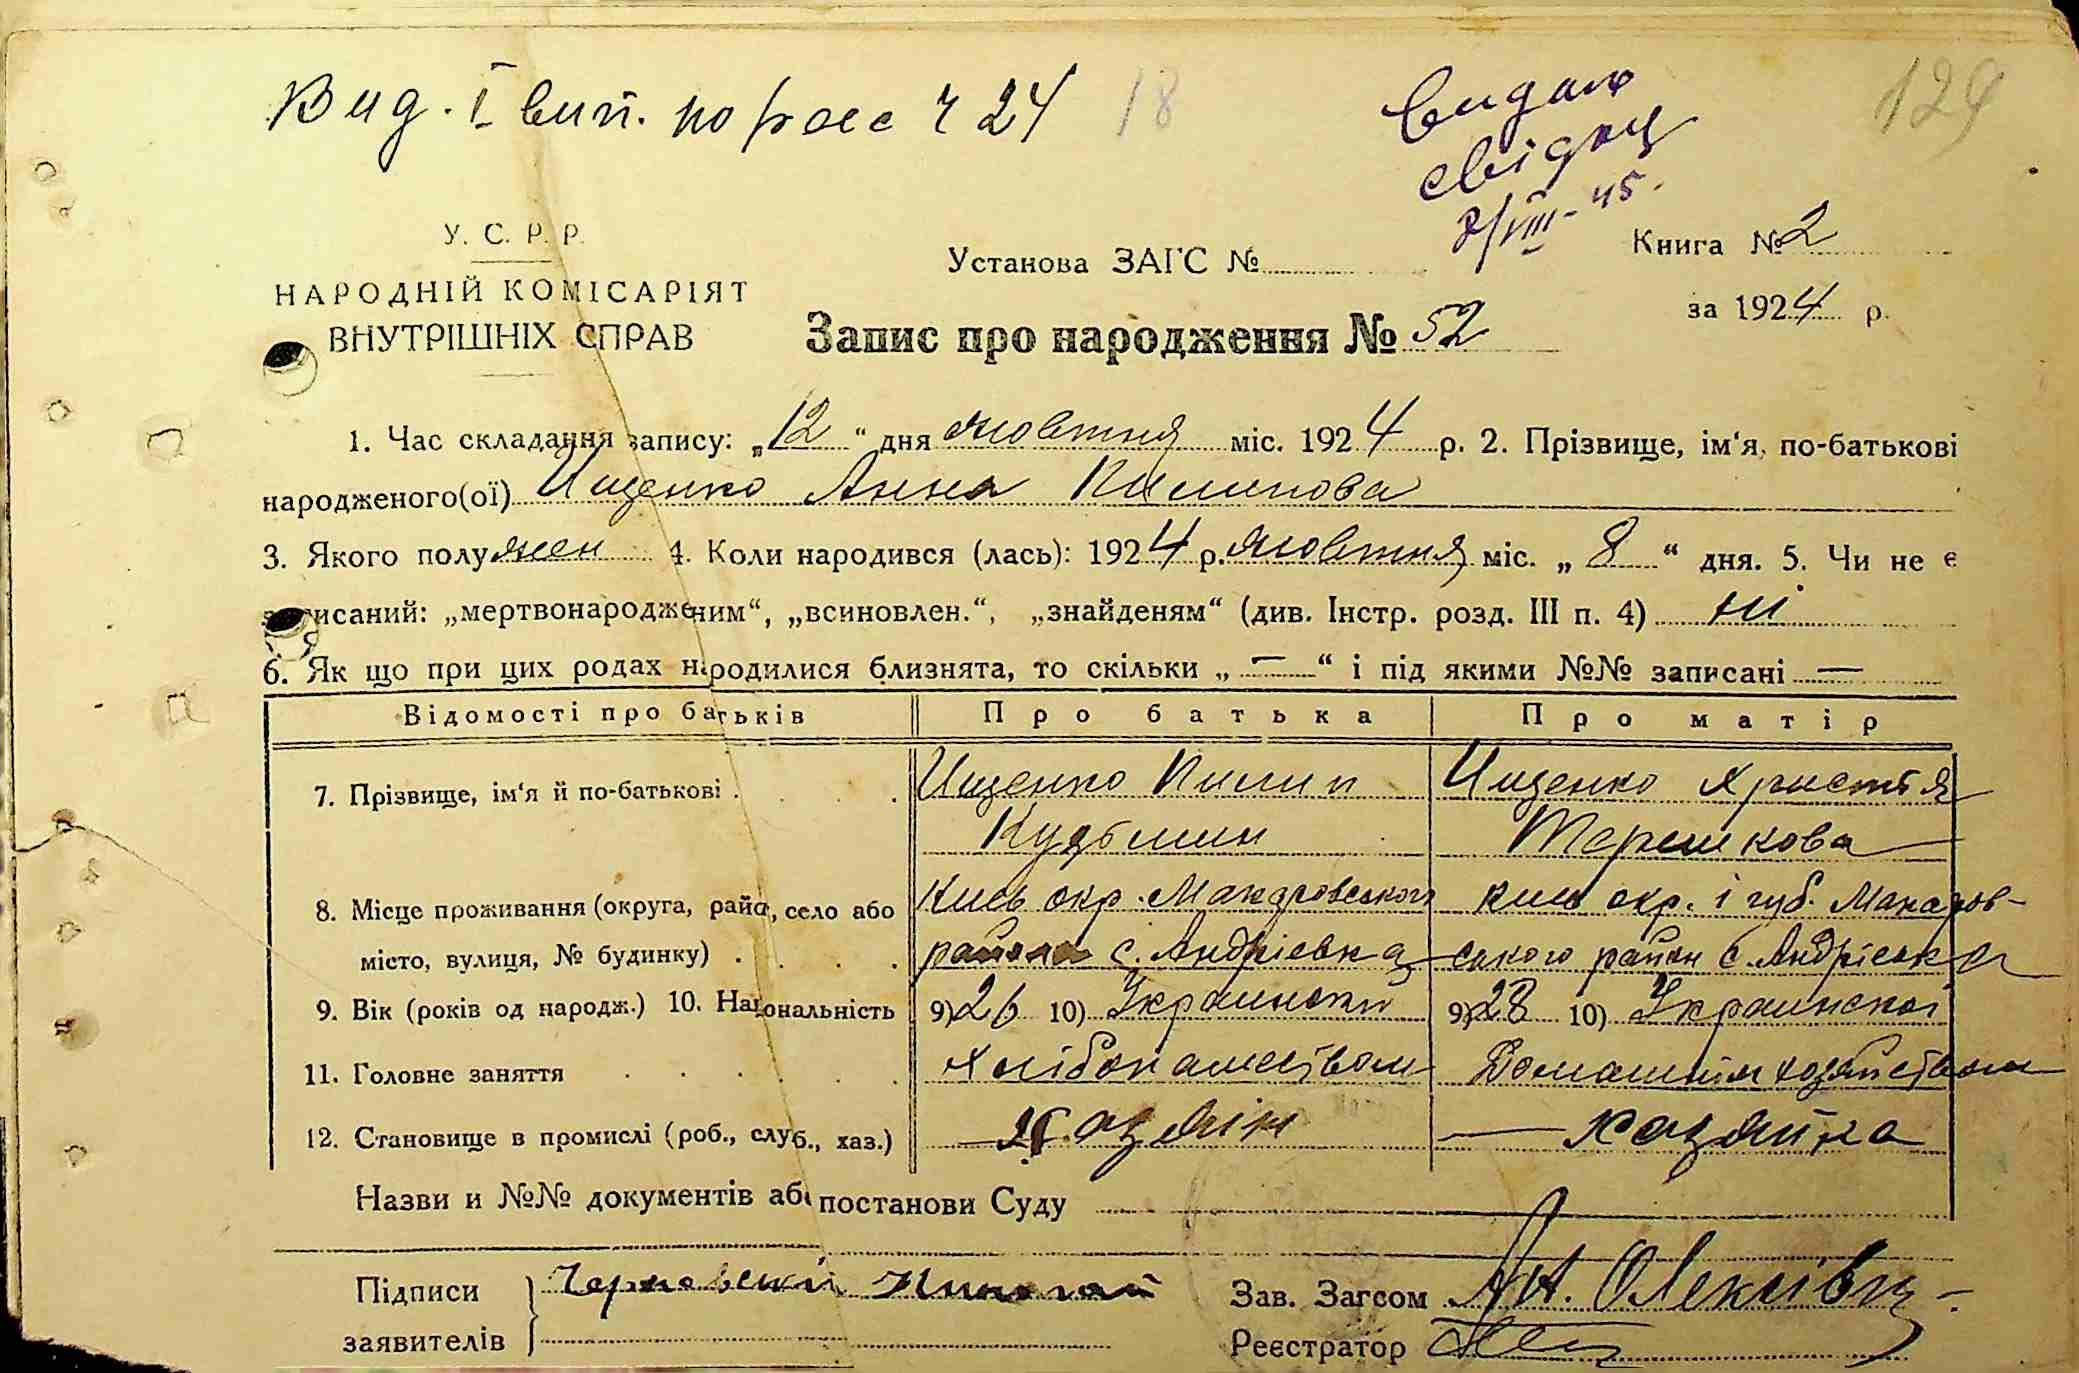 Вид. І вип. по реєс ч 24 18
Видано
свідоц
2/VIII-45.
129
У. С. Р. Р.
НАРОДНІЙ КОМІСАРІЯТ
ВНУТРІШНІХ СПРАВ
Установа ЗАГС №
Книга № 2
за 1924 р.
Запис про народження № 52
1. Час складання запису: „12“ дня жовтня міс. 1924 р. 2. Прізвище, ім‘я, по-батькові
народженого(ої) Ищенко Анна Пилипова
3. Якого полу жен 4. Коли народився (лась): 1924 р. жовтня міс. „8“ дня. 5. Чи не є
записаний: „мертвонародженим“, „всиновлен.“, „знайденям“ (див. Інстр. розд. III п. 4) ні
6. Як що при цих родах народилися близнята, то скільки „—“ і під якими №№ записані —
Відомості про батьків Про батька Про матір
7. Прізвище, ім‘я й по-батькові Ищенко Пилип Ищенко Христтья
Кузьмин Терешкова
8. Місце проживання (округа, район, село або Киев окр. Макаровського Киев окр. і губ. Макаров-
місто, вулиця, № будинку) района с. Андріевка ського район с. Андріевка
9. Вік (років од народж.) 10. Національність 9) 26 10) Украинский 9) 28 10) Украинской
11. Головне заняття Хлібопашеством Домашнім хозяйством
12. Становище в промислі (роб., служ., хаз.) — хазяїн — хазяйка
Назви и №№ документів або постанови Суду
Підписи
заявителів
Николай
Зав. Загсом Ан. Олексієвц
Реєстратор